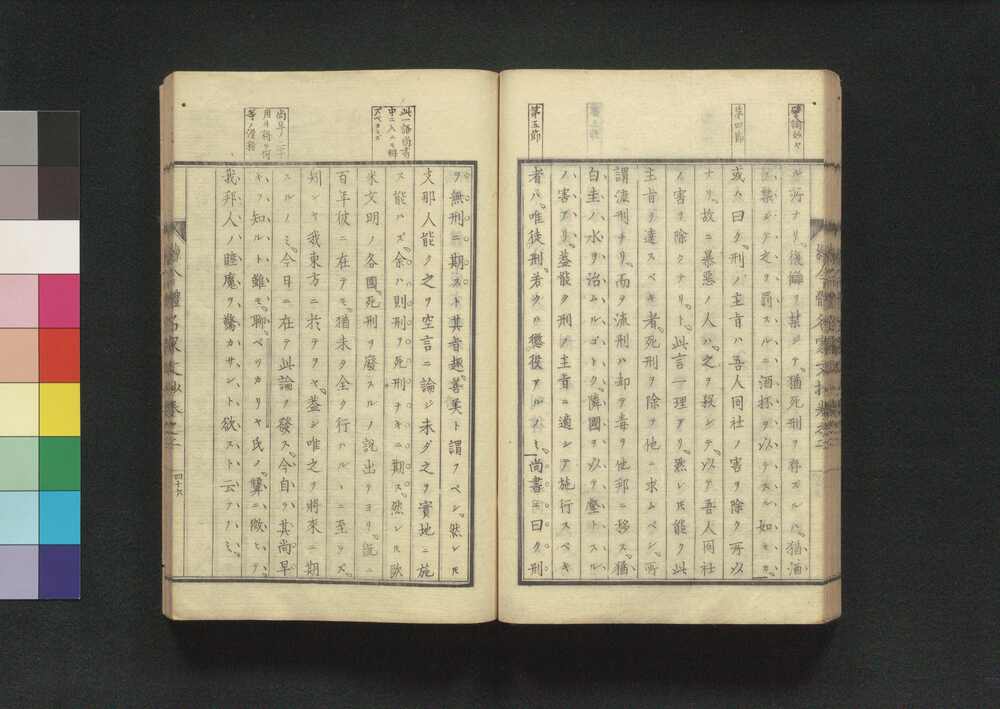 譬論妙々
第四節
第五節
ル所ナリ。復讐ヲ禁ジテ。猶死刑ヲ存スルハ。猶酒
ヲ禁ジテ之ヲ罰スルニ酒杯ヲ以テスル如キ。
或ハ曰ク。刑ノ主旨ハ吾人同社ノ害ヲ除ク所以
ナリ。故ニ暴惡ノ人ハ。之ヲ殺シテ。以テ吾人同社
ノ害ヲ除クナリ。ト。此言一理アリ。然レ𪜈能ク此
主旨ヲ達スベキ者。死刑ヲ除テ他ニ求ムベシ。所
謂流刑ナリ。而ヲ流刑ハ却テ毒ヲ他邦ニ移ス。猶
白圭ノ水ヲ治ムルゴトク。隣國ヲ以テ壑トスル
ノ害アリ。蓋能ク刑ノ主旨ニ適シテ施行スベキ
者ハ。唯徒刑。若クハ懲役アルノミ。尚書ニ曰ク刑
此一語尚書
中ニ入ルモ辨
ズベカラズ
尚早ノ二字
ヲ無刑ニ期スト其者趣。善美ト謂フベシ。然レ𪜈
支那人能ク之ヲ空言ニ論ジ未ダ之ヲ實地ニ施
ス能ハズ。余ハ則刑ヲ死刑ナキニ期ス。然レ𪜈歐
米文明ノ各國。死刑ヲ廢スルノ説出テヨリ。既ニ
百年彼ニ在テモ。猶未タ全ク行ハルヽニ至ラズ。
矧ンヤ我東方ニ於テヲヤ。蓋シ唯之ヲ將來ニ期
スルノミ。今日ニ在テ此論ヲ發ス。今自ラ其尚早
キヲ知ルト雖モ。聊ベッカリヤ氏ノ。顰ニ倣ヒテ。
我邦人ノ睡魔ヲ驚カサント欲スト云フノミ。
四十六